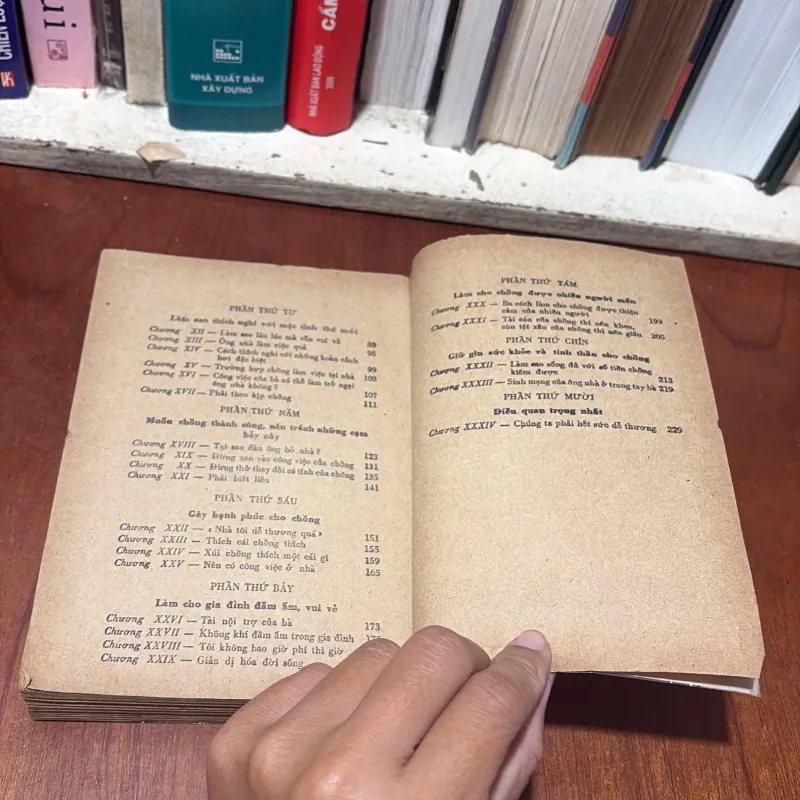 CHIẾN LƯỢC
ui
NHÀ XUẤT BẢN
XÂY DỰNG
CẨM
NHÀ XUẤT BẢN LAO ĐỘNG
PHẦN THỨ TƯ
Làm sao thích nghi với một tình thế mới
Chương XII — Làm sao lâu lóc mà vẫn vui vẻ 89
Chương XIII — Ông nhà làm việc quá 95
Chương XIV — Cách thích nghi với những hoàn cảnh
hơi đặc biệt 99
Chương XV — Trường hợp chồng làm việc tại nhà 103
Chương XVI — Công việc của bà có thể làm trở ngại
ông nhà không? 107
Chương XVII — Phải theo kịp chồng 111
PHẦN THỨ NĂM
Muốn chồng thành công, nên tránh những cạm
bẫy này
Chương XVIII — Tại sao đàn ông bỏ nhà? 123
Chương XIX — Đừng xen vào công việc của chồng 131
Chương XX — Đừng thử thay đổi cá tính của chồng 135
Chương XXI — Phải biết liều 141
PHẦN THỨ SÁU
Gây hạnh phúc cho chồng
Chương XXII — « Nhà tôi dễ thương quá » 151
Chương XXIII — Thích cái chồng thích 155
Chương XXIV — Xúi chồng thích một cái gì 159
Chương XXV — Nên có công việc ở nhà 165
PHẦN THỨ BẢY
Làm cho gia đình đầm ấm, vui vẻ
Chương XXVI — Tài nội trợ của bà 173
Chương XXVII — Không khí đầm ấm trong gia đình
Chương XXVIII — Tôi không bao giờ phí thì giờ
Chương XXIX — Giản dị hóa đời sống
PHẦN THỨ TÁM
Làm cho chồng được nhiều người mến
Chương XXX — Ba cách làm cho chồng được thiện
cảm của nhiều người 199
Chương XXXI — Tài cán của chồng thì nên khen,
còn tật xấu của chồng thì nên giấu 205
PHẦN THỨ CHÍN
Giữ gìn sức khỏe và tinh thần cho chồng
Chương XXXII — Làm sao sống đủ với số tiền chồng
kiếm được 213
Chương XXXIII — Sinh mạng của ông nhà ở trong tay bà 219
PHẦN THỨ MƯỜI
Điều quan trọng nhất
Chương XXXIV — Chúng ta phải hết sức dễ thương 229